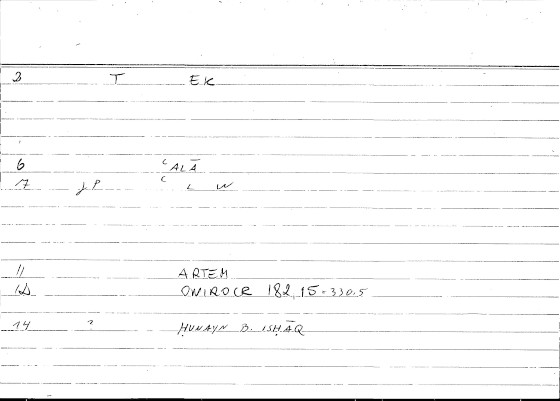 3 T EK
6 ʿALĀ
7 JP ʿ L W
11 ARTEM
12 ONIROCR 182,15-330.5
14 ? ḤUNAYN B. ISḤĀQ